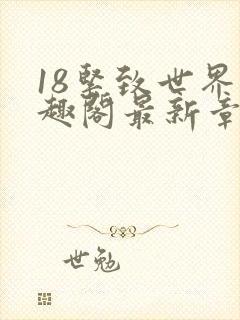 18紧致世界
趣阁最新章
世勉